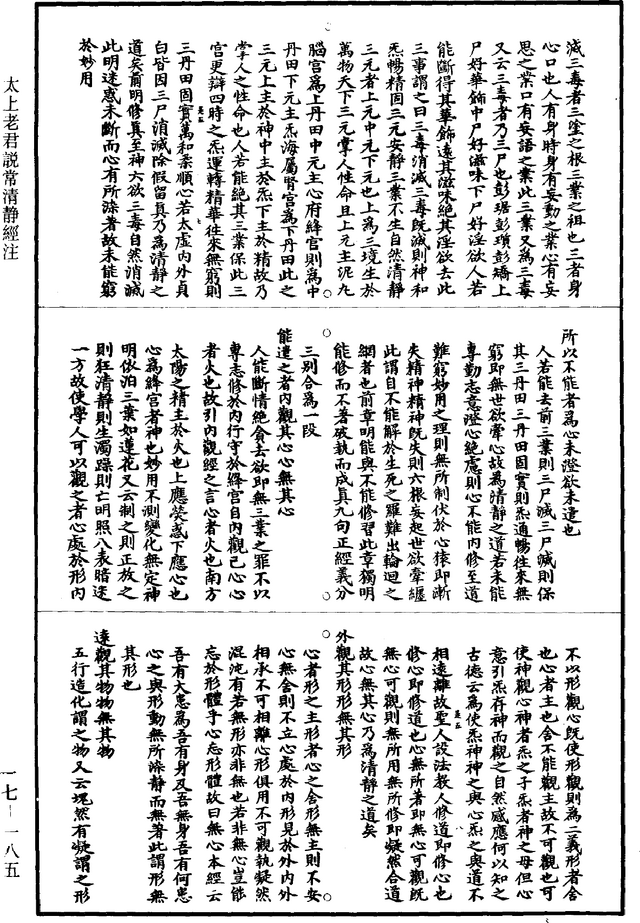 太上老君説常清静經注
滅三毒者三塗之根三業之祖也三者身
心口也人有身時身有妄動之業心有妄
思之業口有妄語之業此三業又爲三毒
又云三毒者乃三尸也彭琚彭瓆彭矯上
尸好華飾中尸好滋味下尸好淫欲人若
能斷得其華飾遠其滋味絶其淫欲去此
三事謂之曰三毒消滅三毒既滅則神和
炁暢精固三元安静三業不生自然清静
三元者上元中元下元也上爲三境生於
萬物天下三元掌人性命且上元主泥丸
腦宫爲上丹田中元主心府絳宫則爲中
丹田下元主炁海屬腎宫爲下丹田此之
三元上主於神中主於炁下主於精故乃
掌人之性命也人若能絶其三業保此三
宫更辯四時之炁運轉精華往來無窮則
三丹田固實萬和柔順心若太虚内外貞
白皆因三尸消滅除假留真乃爲清静之
道矣前明修真至神六欲三毒自然消滅
此明迷惑未斷而心有所染著故未能窮
於妙用
所以不能者爲心未澄欲未遣也
人若能去前三業則三尸滅三尸滅則保
其三丹田三丹田固實則炁通暢往來無
窮即無世欲牽心故爲清静之道若未能
專勤志意澄心絶慮則心不能内修至道
難窮妙用之理則無所制伏於心猿即漸
失精神精神既失則六根妄起世欲牽纏
此謂自不能解於生死之羅難出輪迴之
網者也前章明能與不能修習此章獨明
能修而不著破執而成真九句正經義分
三别合爲一段
能遣之者内觀其心心無其心
人能斷情絶貪去欲即無三業之罪不以
專志修於内行守於絳宫自内觀已心心
者火也故引内觀經之言心者火也南方
太陽之精主於火也上應熒惑下應心也
心爲絳宫者神也妙用不測變化無定神
明依泊三業如蓮花又云制之則正放之
則狂清静則生濁躁則亡明照八表暗迷
一方故使學人可以觀之者心處於形内
不以形觀心既使形觀則爲二義形者舍
也心者主也舍不能觀主故不可觀也可
使神觀心神者炁之子炁者神之母但心
意引炁存神而觀之自然感應何以知之
古德云爲使炁神神之與心炁之與道不
相遠離故聖人設法教人修道即修心也
修心即修道也心無所著即無心可觀既
無心可觀則無所用無所修即凝然合道
故心無其心乃爲清静之道矣
外觀其形形無其形
心者形之主形者心之舍形無主則不安
心無舍則不立心處於内形見於外内外
相承不可相離心形俱用不可觀執凝然
混沌有若無形亦非無也若非無心豈能
忘於形體乎心忘形體故曰無心本經云
吾有大患爲吾有身及吾無身吾有何患
心之與形動無所染静而無著此謂形無
其形也
遠觀其物物無其物
五行造化謂之物又云塊然有凝謂之形
一七—一八五